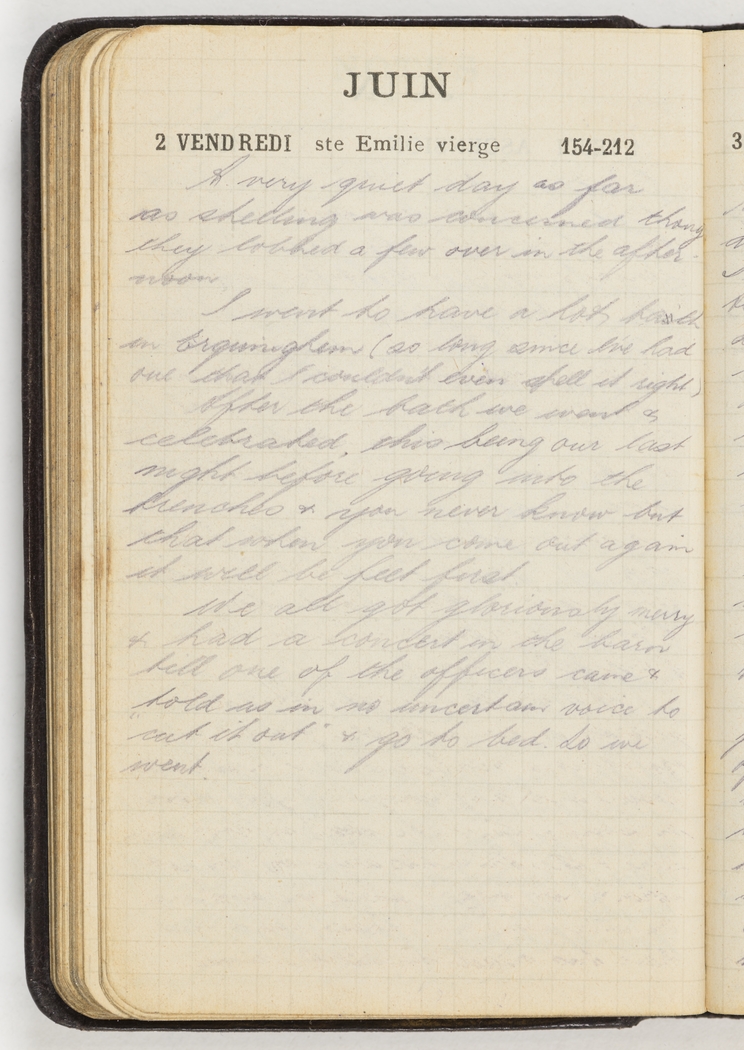 JUIN
2 VENDREDI ste Emilie vierge 154-212
A very quiet day as far
as shelling was concerned thoug
they lobbed a few over in the after-
noon.
I went to have a hot bath
in Erquinghem (so long since I've had
one that I couldn't even spell it right)
After the bath we went &
celebrated, this being our last
night before going into the
trenches & you never know but
that when you come out again
it will be feet first.
We all got gloriously merry
& had a concert in the barn
till one of the officers came &
told us in no uncertain voice to
"cut it out" & go to bed. So we
went.
3